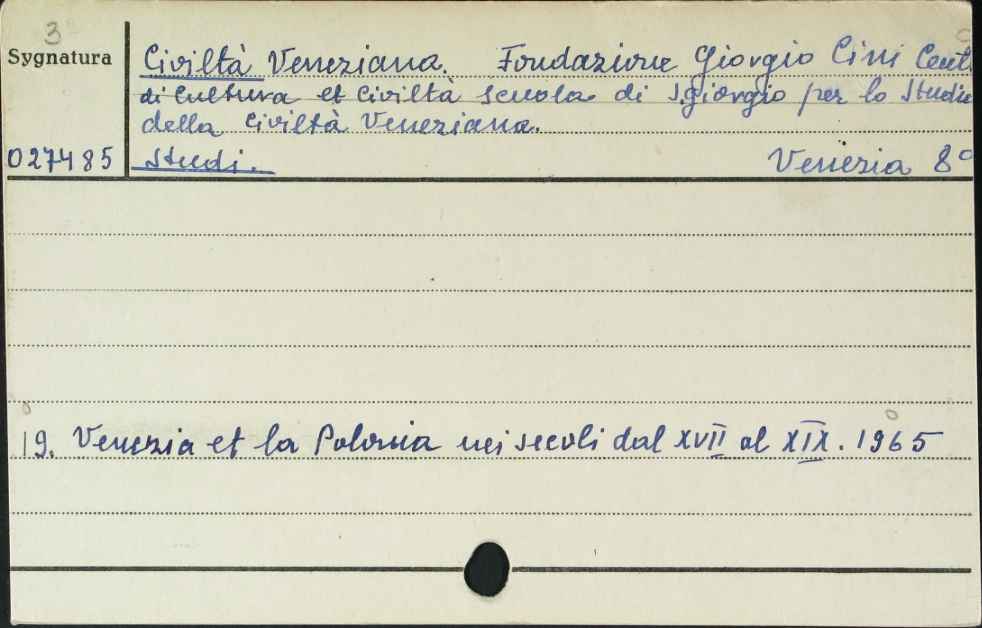 3
Sygnatura
Civiltà Veneziana. Fondazione Giorgio Cini Cent.
di Cultura et Civiltà Scuola di S.Giorgio per lo Studio
della Civiltà Veneziana.
027485 Studi. Venezia 8°
19. Venezia et la Polonia nei secoli dal XVII al XIX. 1965